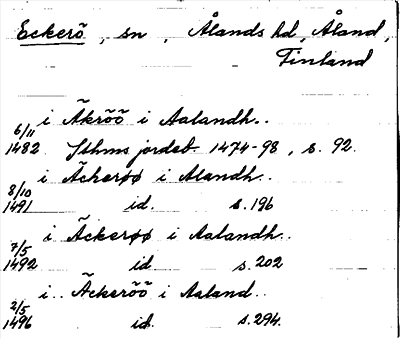 Eckerö, sn, Ålands hd, Åland,
Finland
i Äkröö i Aalandh..
6/11
1482 Sthms jordeb 1474-98, s. 92.
i Äckerøø i Alandh..
8/10
1491 id. s. 196
i Äckerøø i Aalandh..
7/5
1492 id s. 202
i.. Äckeröö i Aaland..
2/5
1496 id. s. 294.